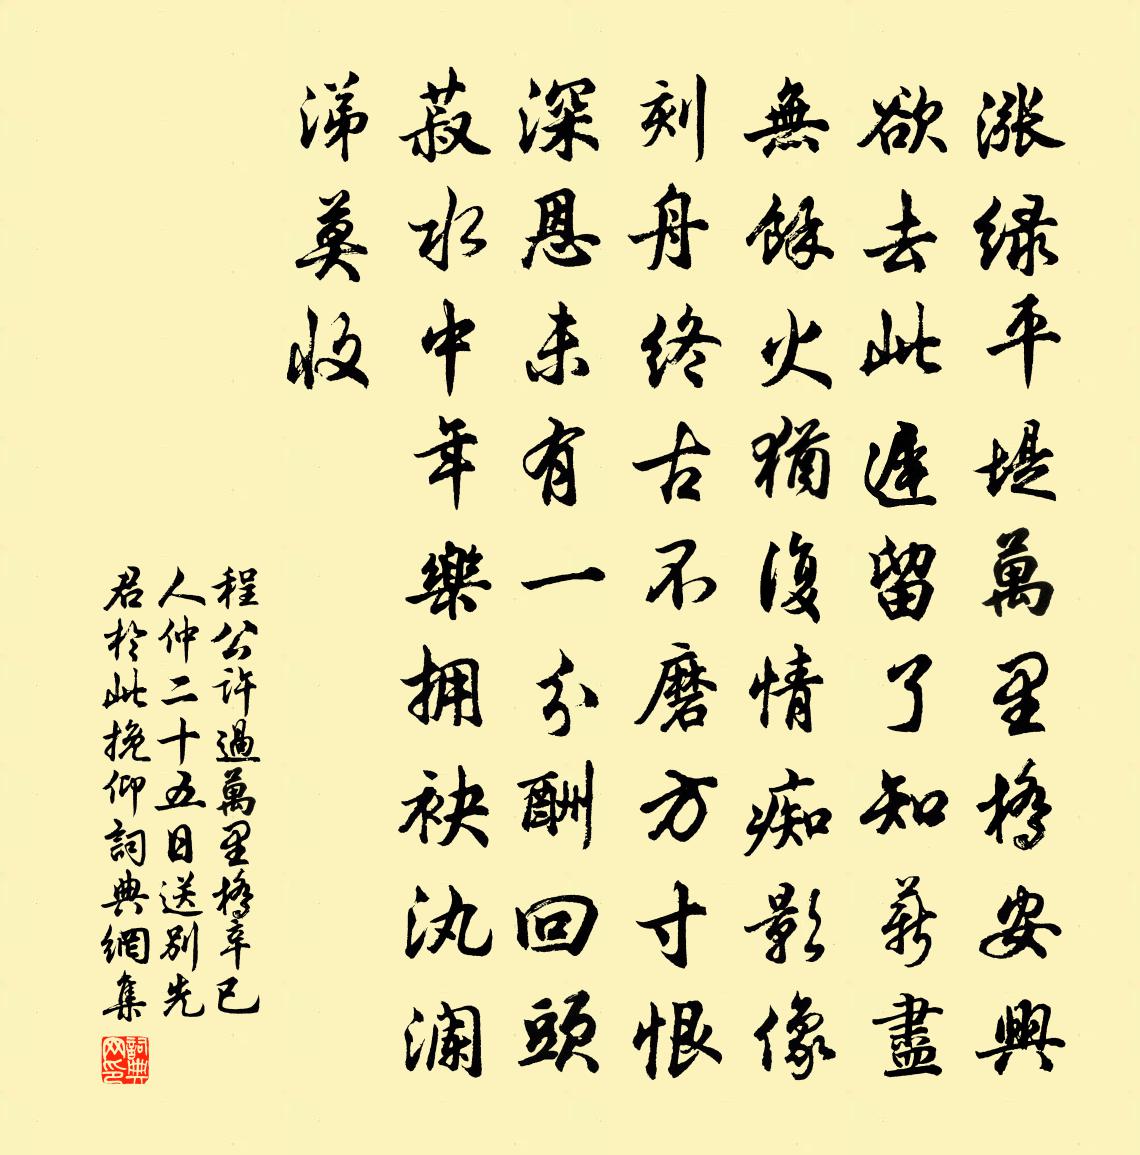 漲緑平堤萬里橋安輿
欲去此遲留了知薪盡
無餘火猶復情痴影像
刻舟終古不磨方寸恨
深恩未有一分酬回頭
菽水中年樂拥袂汍澜
涕莫收
程公許過萬里橋辛巳
人仲二十五日送别先
君於此挽仰詞典網集
詞典
网印